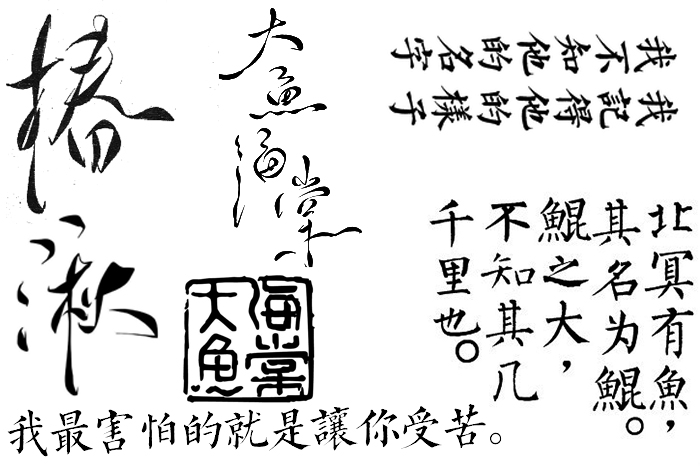 椿
湫
大魚海棠
大魚
海棠
我不知他的名字
我記得他的樣子
北冥有魚，
其名为鯤。
鯤之大，
不知其几
千里也。
我最害怕的就是讓你受苦。